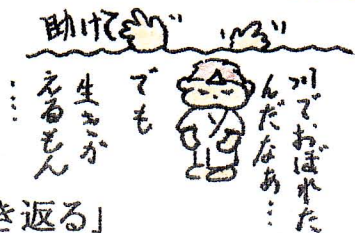 助けて
川で、おぼれた
んだなあ…
でも
生きか
えるもん
…
き返る」